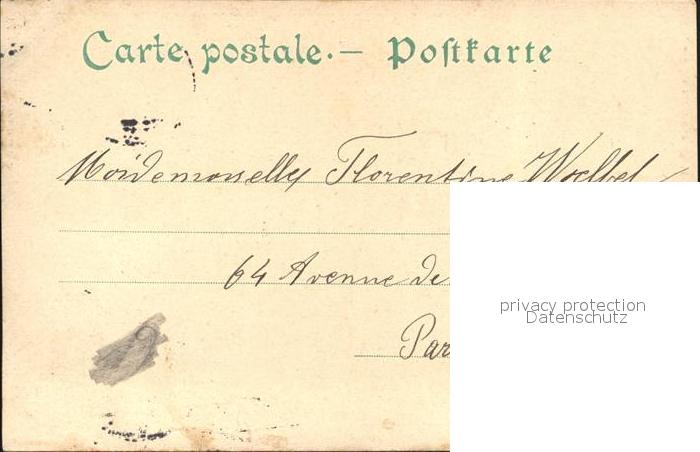 Carte postale.— Postkarte
Moidemoiselles Florentine Woelbel
64 Avenue de
Par
privacy protection
Datenschutz